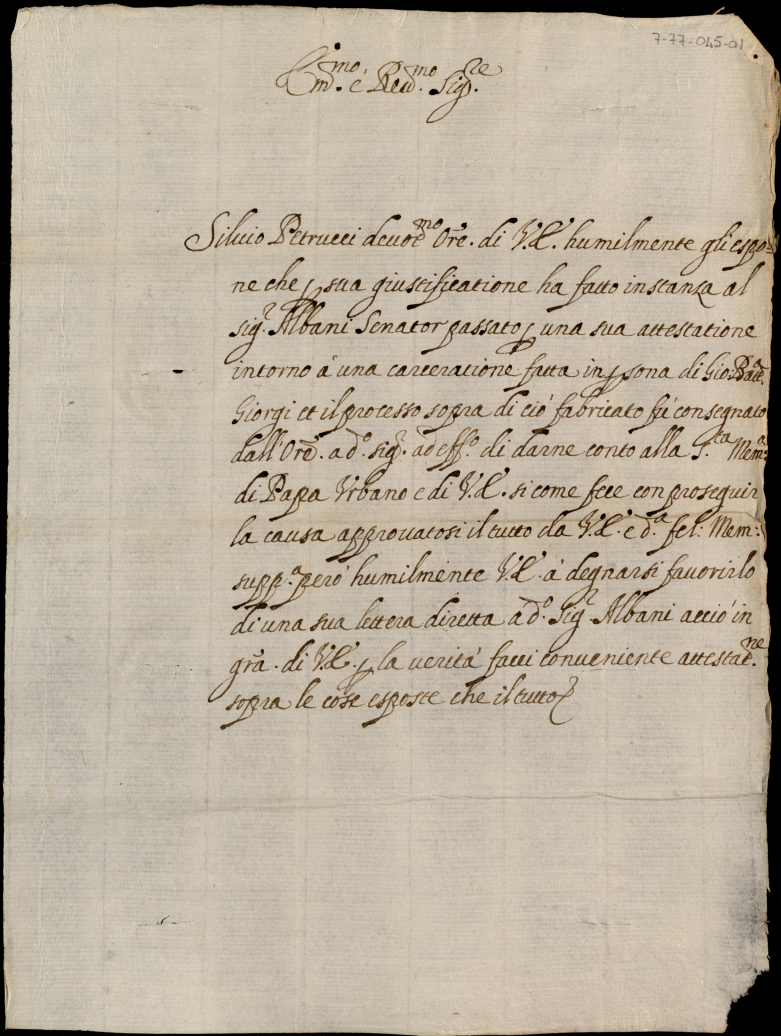 7-77-045-01
Em.mo e Reud.mo Sig.re
Siluio Petrucci deuot.mo Ore. di V.E. humilmente gli espo=
ne che ꝑ sua giustificatione ha fatto instanza al
sig.r Albani Senator passato ꝑ una sua attestatione
intorno á una carceratione fatta in ꝑsona di Gio:Batt.a
Giorgi et il processo sopra di ció fabricato fú consegnato
dall'Ord. a d.o sig.r ad eff.o di darne conto alla S.ta Mem.a
di Papa Vrbano e di V.E. si come fece con proseguir
la causa approuatosi il tutto da V.E. e d.a fel: Mem:
supp.a peró humilmente V.E. á degnarsi fauorirlo
di una sua lettera diretta a d.o Sig.r Albani acció in
grā. di V.E. ꝑ la uerità facci conueniente attestat.ne
sopra le cose esposte che il tutto